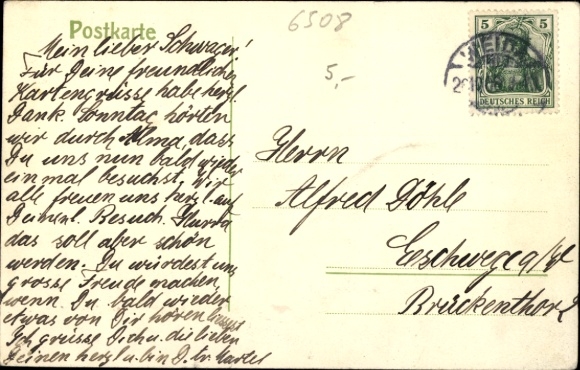 6508
Postkarte
5,-
Mein lieber Schwager!
Für Deine freundlichen
Kartengrüsse habe herzl.
Dank. Sonntag hörten
wir durch Alma, dass
Du uns nun bald wieder
einmal besuchst. Wir
alle freuen uns herzl. auf
Deinen l. Besuch. Hurra
das soll aber schön
werden. Du würdest uns
grosse Freude machen,
wenn Du bald wieder
etwas von Dir hören
Ich grüsse Dich u. die lieben
Deinen herzl. u. bin D. tr.
5 5
DEUTSCHES REICH
Herrn
Alfred Döhle
Eschwege a/W
Brückenthor